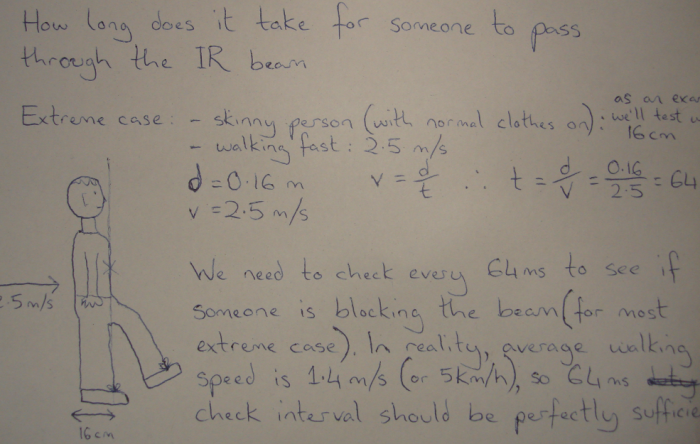 How long does it take for someone to pass
through the IR beam
as an
Extreme case: - skinny person (with normal clothes on): we'll test
16cm
- walking fast: 2.5 m/s
d = 0.16 m v = d/t ∴ t = d/v = 0.16/2.5 = 64
v = 2.5 m/s
We need to check every 64ms to see if
.5m/s someone is blocking the beam (for most
extreme case). In reality, average walking
speed is 1.4 m/s (or 5km/h), so 64ms
check interval should be perfectly
16cm